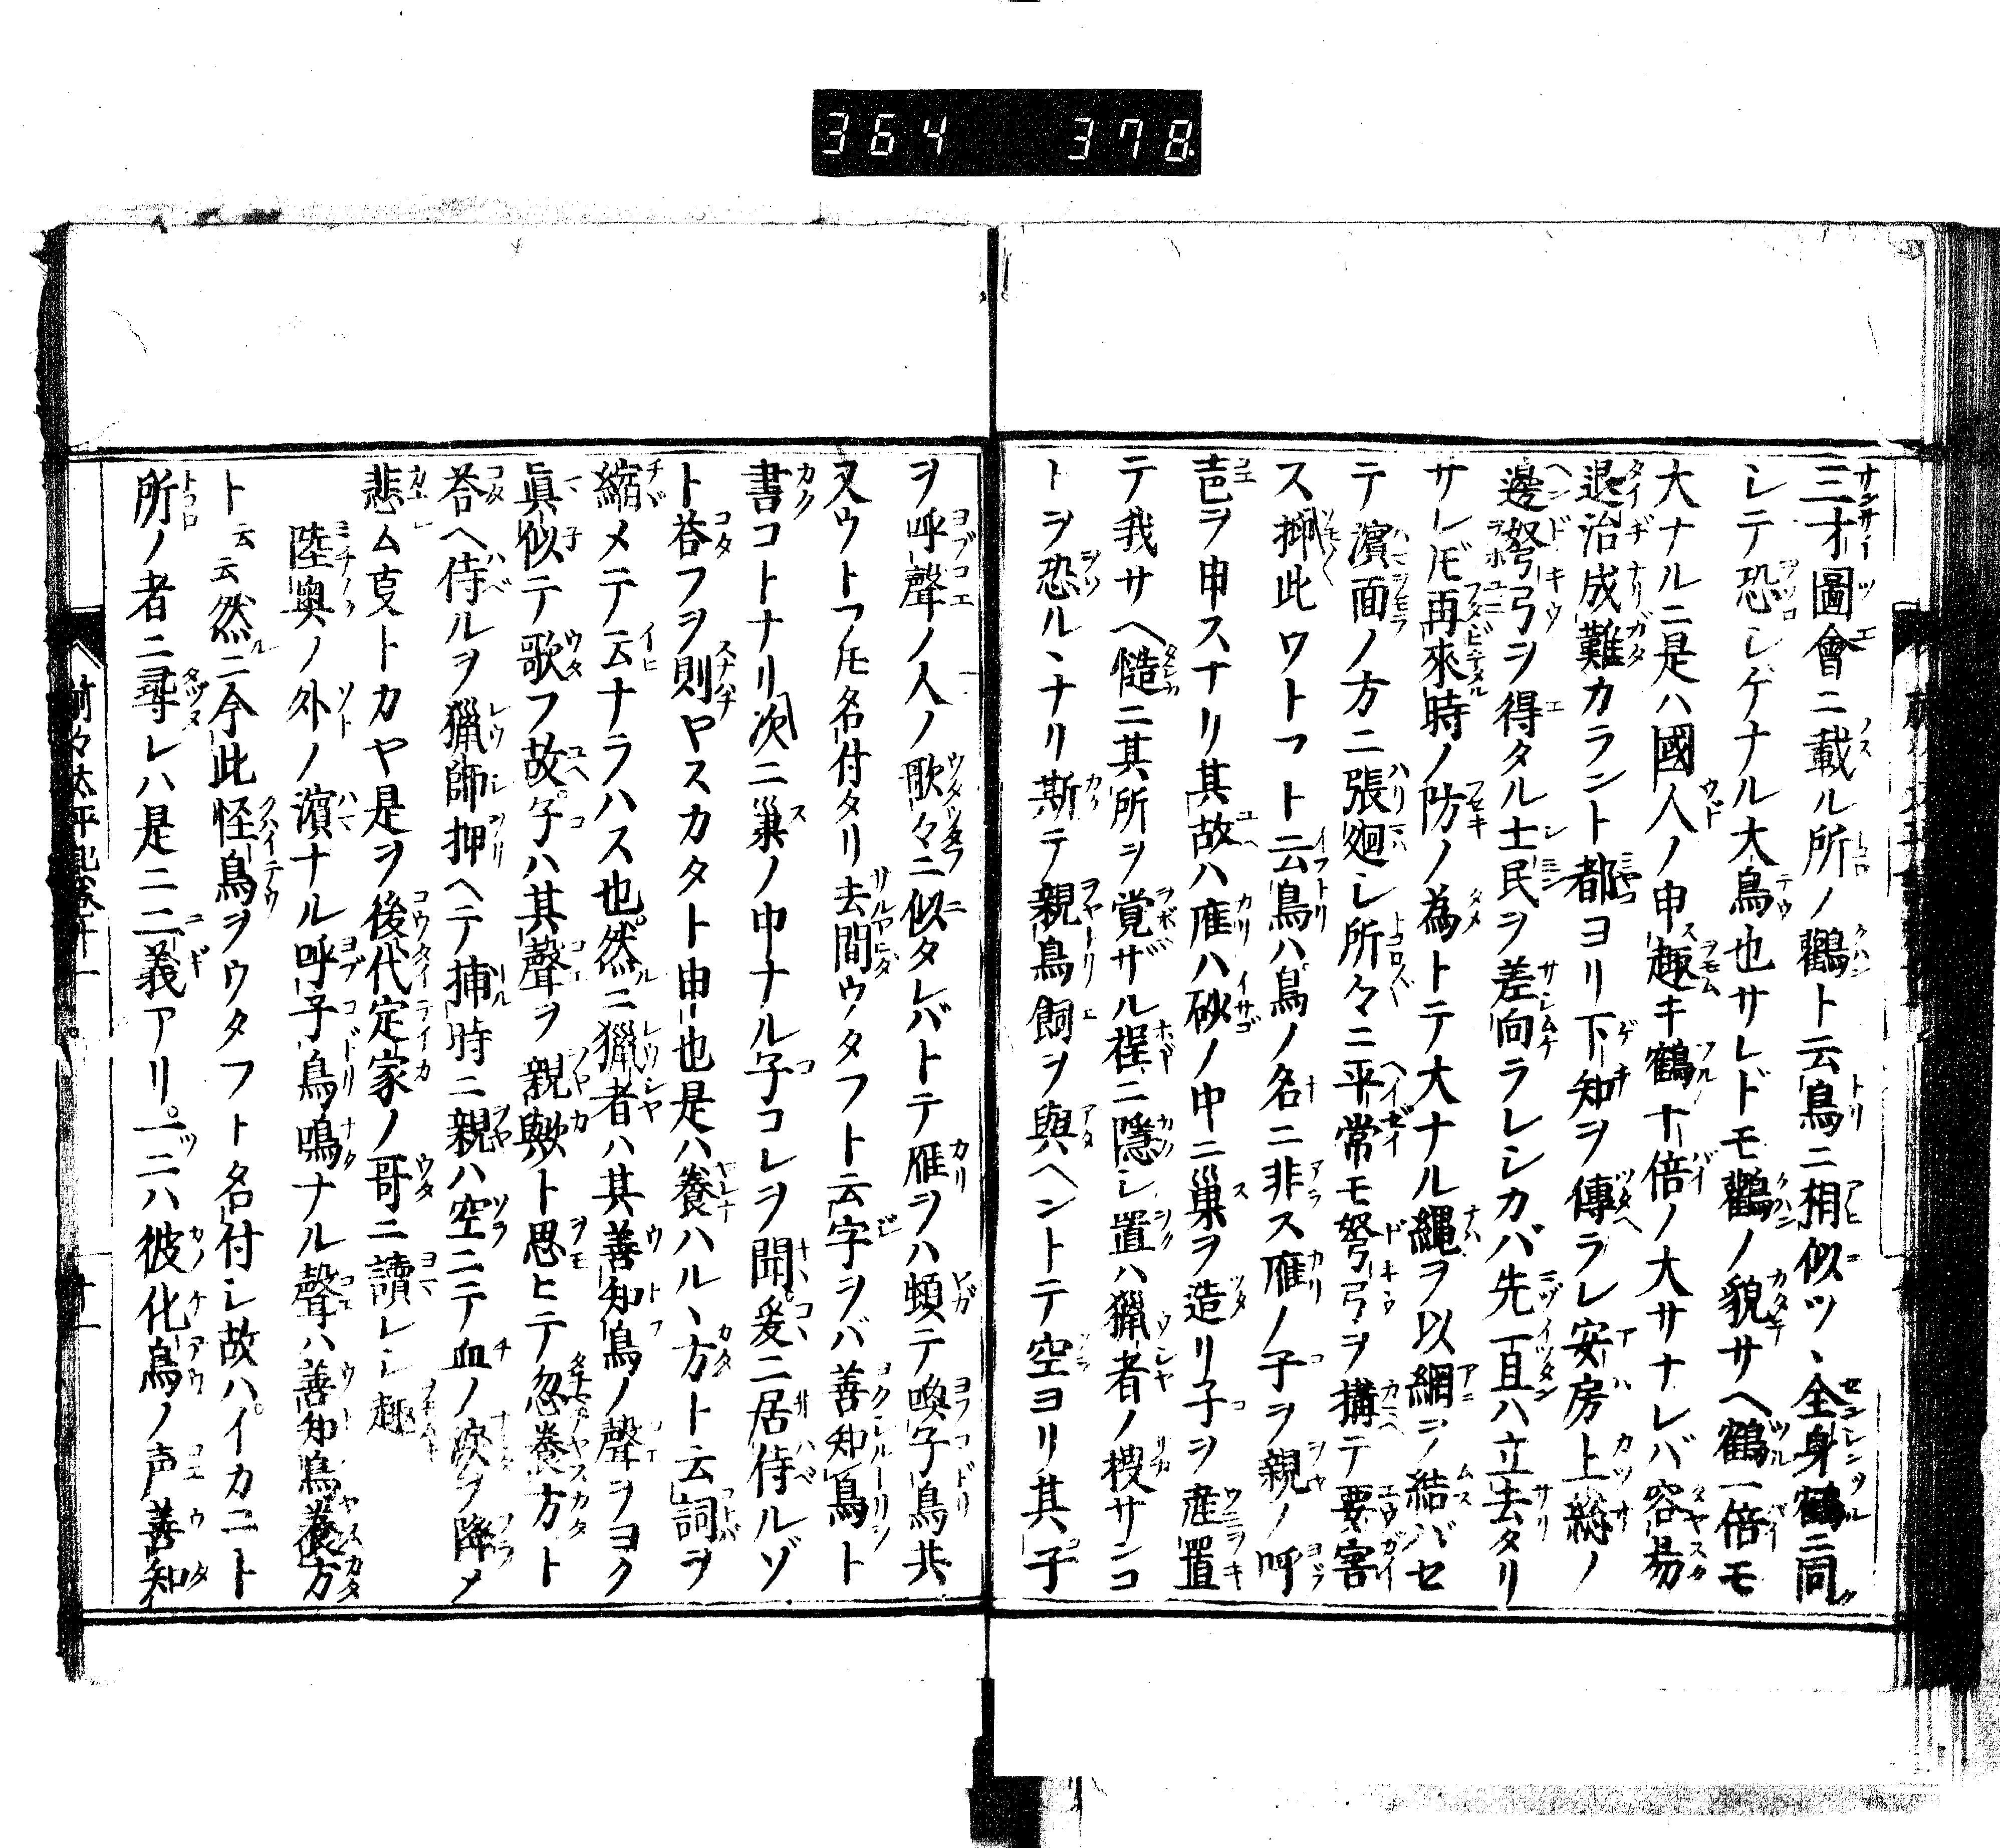 364 378
三才圖會ニ載ル所ノ鸛ト云鳥ニ相似ツヽ全身鶴ニ同
シテ恐シゲナル大鳥也サレドモ鸛ノ貌サヘ鶴一倍モ
大ナルニ是ハ國人ノ申趣キ鶴十倍ノ大サナレバ容易
退治成難カラント都ヨリ下知ヲ傳ラレ安房上総ノ
邊弩弓ヲ得タル士民ヲ差向ラレシカバ先一旦ハ立去タリ
サレ𪜈再來時ノ防ノ為トテ大ナル縄ヲ以網ヲ結バセ
テ濱面ノ方ニ張廻シ所々ニ平常モ弩弓ヲ搆テ要害
ス抑此ウトフト云鳥ハ鳥ノ名ニ非ス雁ノ子ヲ親ノ呼
声ヲ申スナリ其故ハ雁ハ砂ノ中ニ巣ヲ造リ子ヲ産置
テ我サヘ慥ニ其所ヲ覚ザル程ニ隠シ置ハ獵者ノ捜サンコ
トヲ恐ルヽナリ斯テ親鳥飼ヲ與ヘントテ空ヨリ其子
ヲ呼聲ノ人ノ歌々ニ似タレバトテ雁ヲハ頓テ喚子鳥共
又ウトフ𪜈名付タリ去間ウタフト云字ヲバ善知鳥ト
書コトナリ次ニ巣ノ中ナル子コレヲ聞爰ニ居侍ルゾ
ト荅フヲ則ヤスカタト申也是ハ養ハルヽ方ト云詞ヲ
縮メテ云ナラハス也然ニ獵者ハ其善知鳥ノ聲ヲヨク
眞似テ歌フ故子ハ其聲ヲ親歟ト思ヒテ忽養方ト
荅ヘ侍ルヲ獵師押ヘテ捕時ニ親ハ空ニテ血ノ涙ヲ降メ
悲ム叓トカヤ是ヲ後代定家ノ哥ニ讀レシ趣
陸奥ノ外ノ濱ナル呼子鳥鳴ナル聲ハ善知鳥養方
ト云云然ニ今此怪鳥ヲウタフト名付シ故ハイカニト
所ノ者ニ尋レハ是ニ二義アリ一ニハ彼化鳥ノ声善知
前々太平記卷廿一